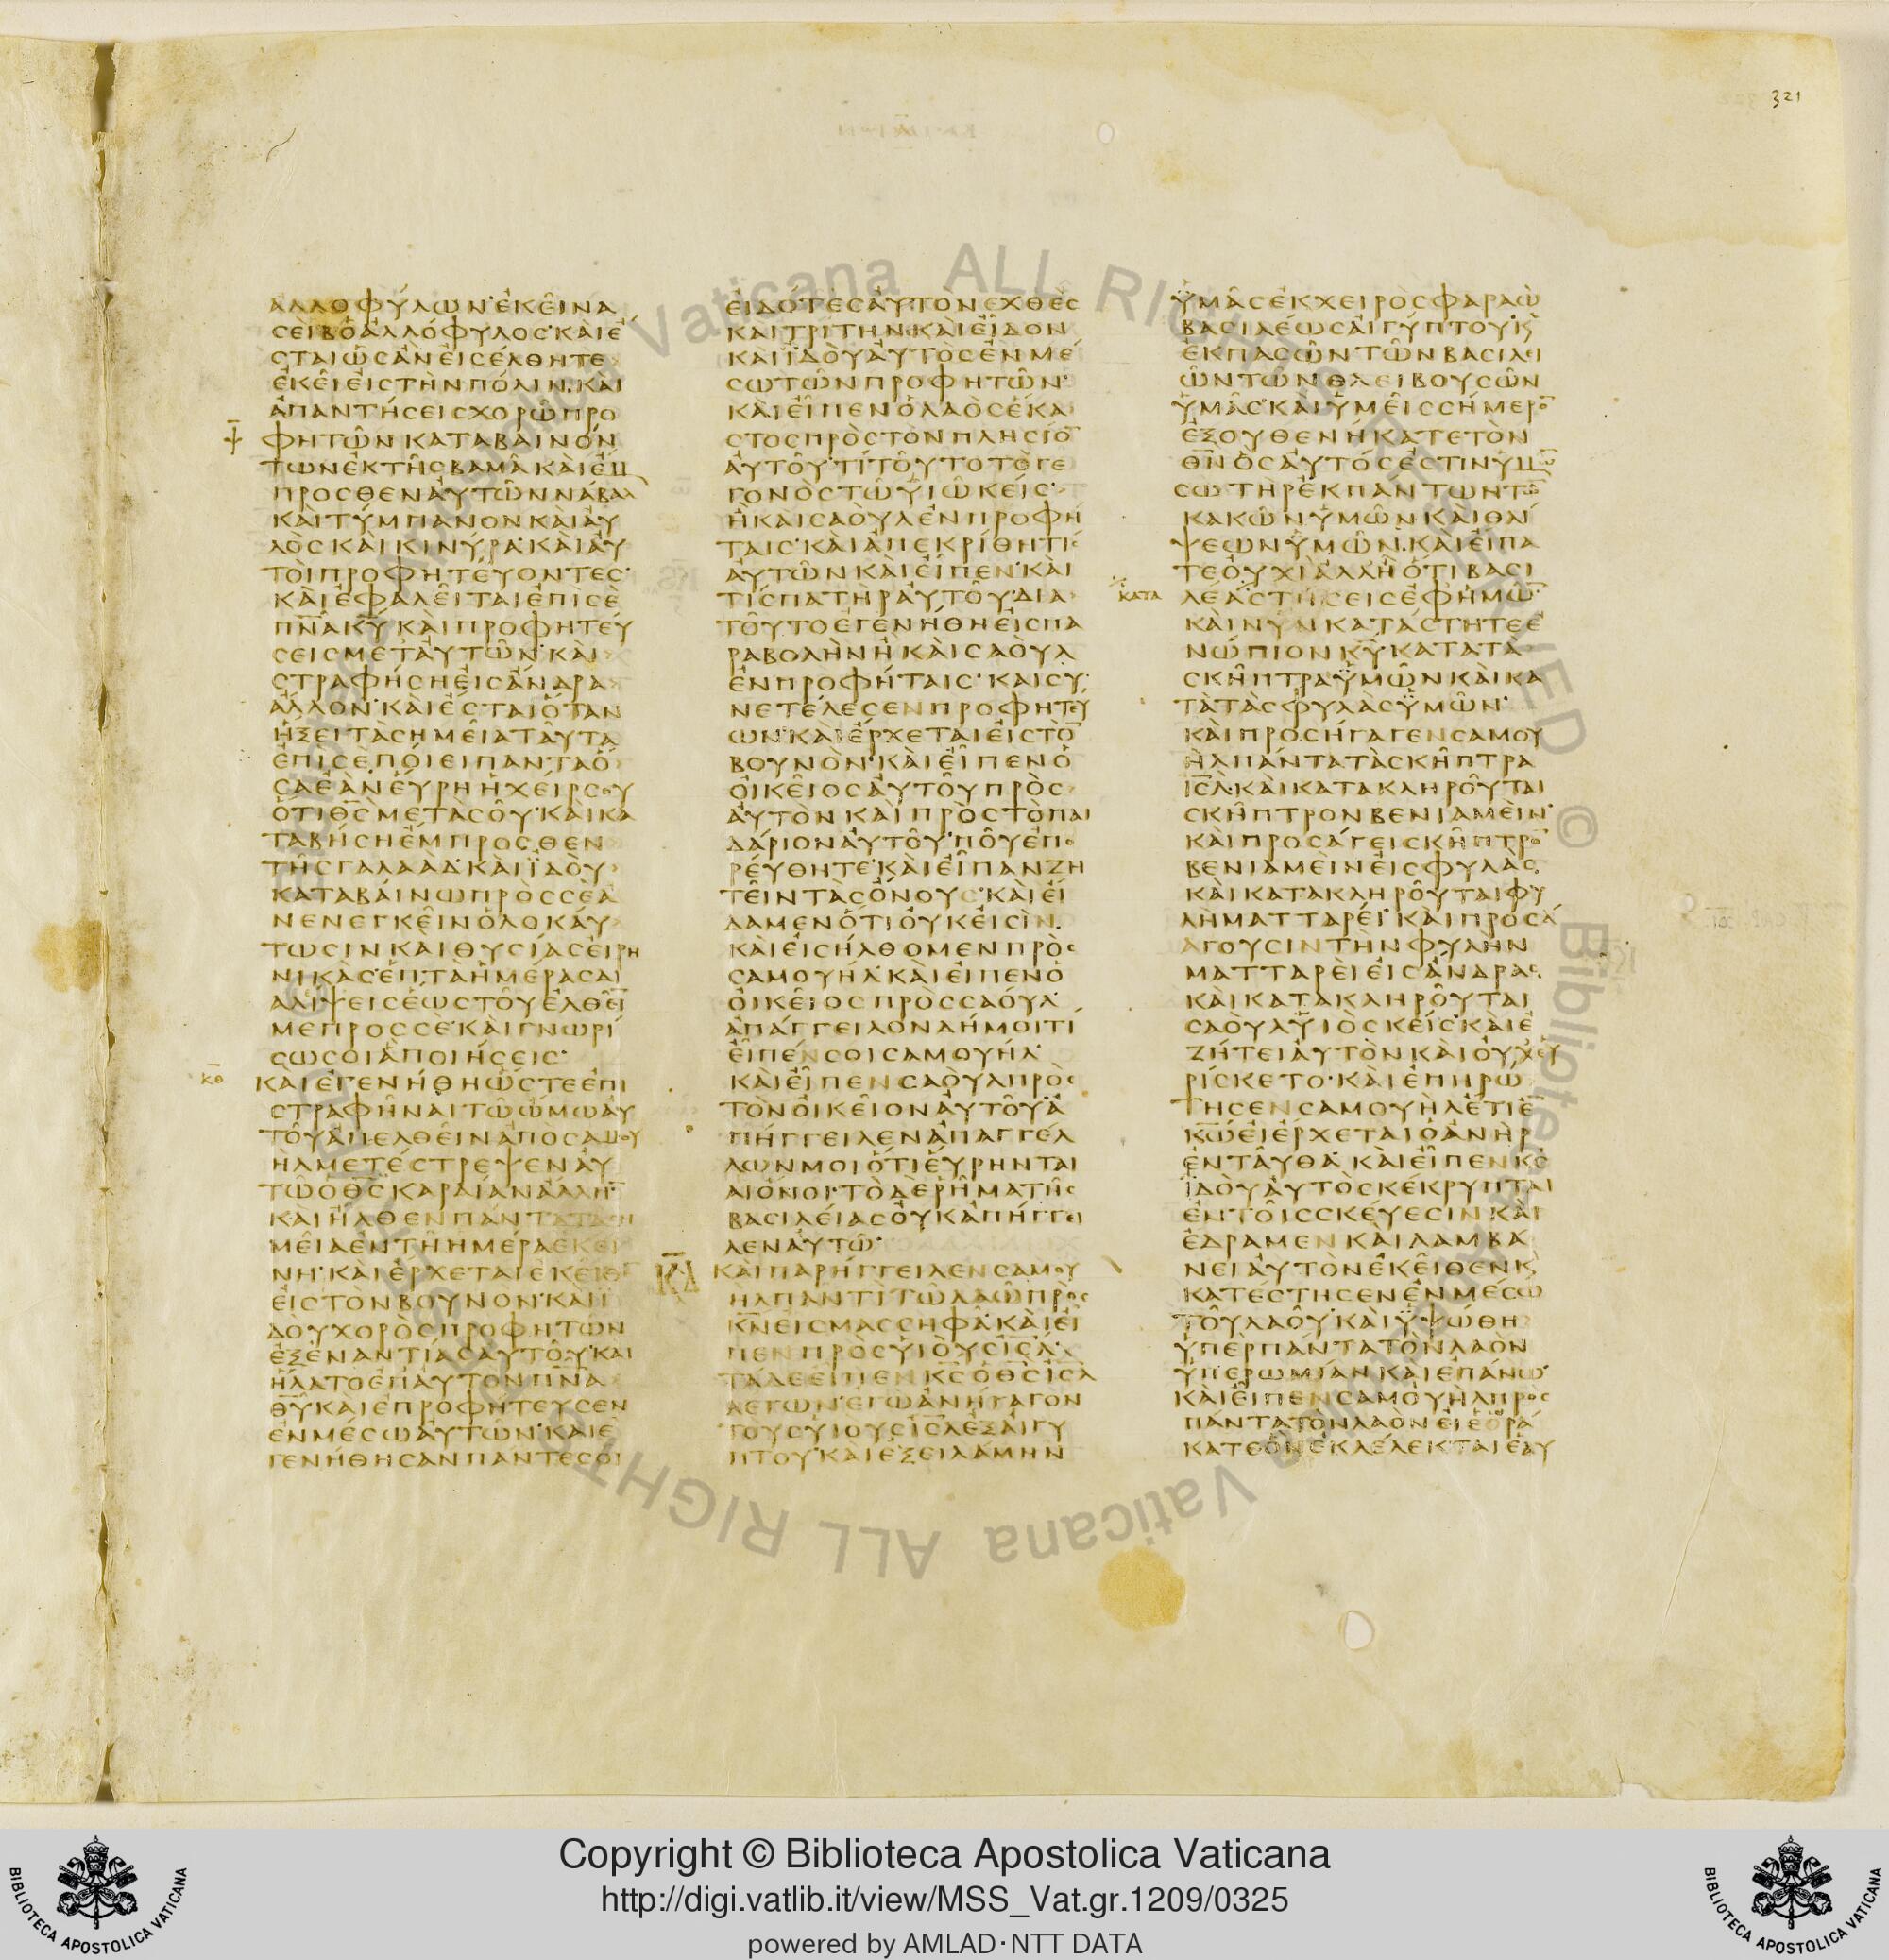 321
ΑΛΛΟΦΎΛΩΝ· ἘΚΕῖΝΑ
ΣΕΙΒΌΑΛΛΌΦΥΛΟΣ· ΚΑΙΕ
ΣΤΑΙὩΣΑΝΕΙΣΕΛΘΗΤΕ
ἘΚΕΙΕΙΣΤΗΝΠΟΛΙΝ· ΚΑΙ
ΑΠΑΝΤΗΣΕΙΣΧΟΡΩΠΡΟ
ΦΗΤΩΝΚΑΤΑΒΑΙΝΟΝ
ΤΩΝΕΚΤΗΣΒΑΜΑΚΑΙΕΜ
ΠΡΟΣΘΕΝΑΥΤΩΝΝΑΒΑΛ
ΚΑΙΤΥΜΠΑΝΟΝΚΑΙΑΥ
ΛΟΣΚΑΙΚΙΝΥΡΑ· ΚΑΙΑΥ
ΤΟΙΠΡΟΦΗΤΕΥΟΝΤΕΣ·
ΚΑΙΕΦΑΛΕΙΤΑΙΕΠΙΣΕ
ΠΝΑΚΥΚΑΙΠΡΟΦΗΤΕΥ
ΣΕΙΣΜΕΤΑΥΤΩΝ· ΚΑΙ
ΣΤΡΑΦΗΣΗΕΙΣΑΝΔΡΑ
ΑΛΛΟΝ· ΚΑΙΕΣΤΑΙΟΤΑΝ
ΗΞΕΙΤΑΣΗΜΕΙΑΤΑΥΤΑ
ΕΠΙΣΕΠΟΙΕΙΠΑΝΤΑΟ
ΣΑΕΑΝΕΥΡΗΗΧΕΙΡΣΟΥ
ΟΤΙΘΣΜΕΤΑΣΟΥ· ΚΑΙΚΑ
ΤΑΒΗΣΗΕΜΠΡΟΣΘΕΝ
ΤΗΣΓΑΛΑΑΔ· ΚΑΙΪΔΟΥ
ΚΑΤΑΒΑΙΝΩΠΡΟΣΣΕΑ
ΝΕΝΕΓΚΕΙΝΟΛΟΚΑΥ
ΤΩΣΙΝΚΑΙΘΥΣΙΑΣΕΙΡΗ
ΝΙΚΑΣ· ΕΠΤΑΗΜΕΡΑΣΔΙ
ΑΛΙΨΕΙΣΕΩΣΤΟΥΕΛΘΕΙ
ΜΕΠΡΟΣΣΕ· ΚΑΙΓΝΩΡΙ
ΣΩΣΟΙΑΠΟΙΗΣΕΙΣ·
κο ΚΑΙΕΓΕΝΗΘΗΩΣΤΕΕΠΙ
ΣΤΡΑΦΗΝΑΙΤΩΩΜΩΑΥ
ΤΟΥΑΠΕΛΘΕΙΝΑΠΟΣΑΜΟΥ
ΗΛΜΕΤΕΣΤΡΕΨΕΝΑΥ
ΤΩΟΘΣΚΑΡΔΙΑΝΑΛΛΗ·
ΚΑΙΗΛΘΕΝΠΑΝΤΑΤΑΣΗ
ΜΕΙΑΕΝΤΗΗΜΕΡΑΕΚΕΙ
ΝΗ· ΚΑΙΕΡΧΕΤΑΙΕΚΕΙΘΕ
ΕΙΣΤΟΝΒΟΥΝΟΝ· ΚΑΙΪ
ΔΟΥΧΟΡΟΣΠΡΟΦΗΤΩΝ
ΕΞΕΝΑΝΤΙΑΣΑΥΤΟΥ· ΚΑΙ
ΗΛΑΤΟΕΠΑΥΤΟΝΠΝΑ
ΘΥΚΑΙΕΠΡΟΦΗΤΕΥΣΕΝ
ΕΝΜΕΣΩΑΥΤΩΝ· ΚΑΙΕ
ΓΕΝΗΘΗΣΑΝΠΑΝΤΕΣΟΙ
ΕΙΔΟΤΕΣΑΥΤΟΝΕΧΘΕΣ
ΚΑΙΤΡΙΤΗΝ· ΚΑΙΕΙΔΟΝ
ΚΑΙΪΔΟΥΑΥΤΟΣΕΝΜΕ
ΣΩΤΩΝΠΡΟΦΗΤΩΝ·
ΚΑΙΕΙΠΕΝΟΛΑΟΣΕΚΑ
ΣΤΟΣΠΡΟΣΤΟΝΠΛΗΣΙΟ
ΑΥΤΟΥ· ΤΙΤΟΥΤΟΤΟΓΕ
ΓΟΝΟΣΤΩΫΙΩΚΕΙΣ·
ΗΚΑΙΣΑΟΥΛΕΝΠΡΟΦΗ
ΤΑΙΣ· ΚΑΙΑΠΕΚΡΙΘΗΤΙΣ
ΑΥΤΩΝΚΑΙΕΙΠΕΝ· ΚΑΙ
ΤΙΣΠΑΤΗΡΑΥΤΟΥ· ΔΙΑ
ΤΟΥΤΟΕΓΕΝΗΘΗΕΙΣΠΑ
ΡΑΒΟΛΗΝΗΚΑΙΣΑΟΥΛ
ΕΝΠΡΟΦΗΤΑΙΣ· ΚΑΙΣΥ
ΝΕΤΕΛΕΣΕΝΠΡΟΦΗΤΕΥ
ΩΝ· ΚΑΙΕΡΧΕΤΑΙΕΙΣΤΟ
ΒΟΥΝΟΝ· ΚΑΙΕΙΠΕΝΟ
ΟΙΚΕΙΟΣΑΥΤΟΥΠΡΟΣ
ΑΥΤΟΝΚΑΙΠΡΟΣΤΟΠΑΙ
ΔΑΡΙΟΝΑΥΤΟΥ· ΠΟΥΕΠΟ
ΡΕΥΘΗΤΕ· ΚΑΙΕΙΠΑΝΖΗ
ΤΕΙΝΤΑΣΟΝΟΥΣ· ΚΑΙΕΙ
ΔΑΜΕΝΟΤΙΟΥΚΕΙΣΙΝ·
ΚΑΙΕΙΣΗΛΘΟΜΕΝΠΡΟΣ
ΣΑΜΟΥΗΛ· ΚΑΙΕΙΠΕΝΟ
ΟΙΚΕΙΟΣΠΡΟΣΣΑΟΥΛ·
ΑΠΑΓΓΕΙΛΟΝΔΗΜΟΙΤΙ
ΕΙΠΕΝΣΟΙΣΑΜΟΥΗΛ·
ΚΑΙΕΙΠΕΝΣΑΟΥΛΠΡΟΣ
ΤΟΝΟΙΚΕΙΟΝΑΥΤΟΥ· Α
ΠΗΓΓΕΙΛΕΝΑΠΑΓΓΕΛ
ΛΩΝΜΟΙΟΤΙΕΥΡΗΝΤΑΙ
ΑΙΟΝΟΙ· ΤΟΔΕΡΗΜΑΤΗΣ
ΒΑΣΙΛΕΙΑΣΟΥΚΑΠΗΓΓΕΙ
ΛΕΝΑΥΤΩ·
ΚΔ ΚΑΙΠΑΡΗΓΓΕΙΛΕΝΣΑΜΟΥ
ΗΛΠΑΝΤΙΤΩΛΑΩΠΡΟΣ
ΚΝΕΙΣΜΑΣΣΗΦΑ· ΚΑΙΕΙ
ΠΕΝΠΡΟΣΥΙΟΥΣΙΣΛ·
ΤΑΔΕΕΙΠΕΝΚΣΟΘΣΙΣΛ
ΛΕΓΩΝ· ΕΓΩΑΝΗΓΑΓΟΝ
ΤΟΥΣΥΙΟΥΣΙΣΛΕΞΑΙΓΥ
ΠΤΟΥ· ΚΑΙΕΞΕΙΛΑΜΗΝ
ΫΜΑΣΕΚΧΕΙΡΟΣΦΑΡΑΩ
ΒΑΣΙΛΕΩΣΑΙΓΥΠΤΟΥΚ
ΕΚΠΑΣΩΝΤΩΝΒΑΣΙΛΕΙ
ΩΝΤΩΝΘΛΕΙΒΟΥΣΩΝ
ΫΜΑΣ· ΚΑΙΫΜΕΙΣΣΗΜΕΡΟ
ΕΞΟΥΘΕΝΗΚΑΤΕΤΟΝ
ΘΝΟΣΑΥΤΟΣΕΣΤΙΝΥΜΩ
ΣΩΤΗΡΕΚΠΑΝΤΩΝΤΩ
ΚΑΚΩΝΫΜΩΝ· ΚΑΙΘΛΙ
ΨΕΩΝΫΜΩΝ· ΚΑΙΕΙΠΑ
ΤΕΟΥΧΙΑΛΛΗΟΤΙΒΑΣΙ
ΚΑΤΑ ΛΕΑΣΤΗΣΕΙΣΕΦΗΜΩ
ΚΑΙΝΥΝΚΑΤΑΣΤΗΤΕΕ
ΝΩΠΙΟΝΚΥ· ΚΑΤΑΤΑ
ΣΚΗΠΤΡΑΫΜΩΝΚΑΙΚΑ
ΤΑΤΑΣΦΥΛΑΣΫΜΩΝ·
ΚΑΙΠΡΟΣΗΓΑΓΕΝΣΑΜΟΥ
ΗΛΠΑΝΤΑΤΑΣΚΗΠΤΡΑ
ΙΣΛ· ΚΑΙΚΑΤΑΚΛΗΡΟΥΤΑΙ
ΣΚΗΠΤΡΟΝΒΕΝΙΑΜΕΙΝ·
ΚΑΙΠΡΟΣΑΓΕΙΣΚΗΠΤΡΟ
ΒΕΝΙΑΜΕΙΝΕΙΣΦΥΛΑΣ·
ΚΑΙΚΑΤΑΚΛΗΡΟΥΤΑΙΦΥ
ΛΗΜΑΤΤΑΡΕΙ· ΚΑΙΠΡΟΣΑ
ΑΓΟΥΣΙΝΤΗΝΦΥΛΗΝ
ΜΑΤΤΑΡΕΙΕΙΣΑΝΔΡΑΣ·
ΚΑΙΚΑΤΑΚΛΗΡΟΥΤΑΙ
ΣΑΟΥΛΫΙΟΣΚΕΙΣ· ΚΑΙΕ
ΖΗΤΕΙΑΥΤΟΝΚΑΙΟΥΧΕΥ
ΡΙΣΚΕΤΟ· ΚΑΙΕΠΗΡΩ
ΤΗΣΕΝΣΑΜΟΥΗΛΕΤΙΕ
ΚΩΕΙΕΡΧΕΤΑΙΟΑΝΗΡ
ΕΝΤΑΥΘΑ· ΚΑΙΕΙΠΕΝΚΣ
ΪΔΟΥΑΥΤΟΣΚΕΚΡΥΠΤΑΙ
ΕΝΤΟΙΣΣΚΕΥΕΣΙΝ· ΚΑΙ
ΕΔΡΑΜΕΝΚΑΙΛΑΜΒΑ
ΝΕΙΑΥΤΟΝΕΚΕΙΘΕΝΚ
ΚΑΤΕΣΤΗΣΕΝΕΝΜΕΣΩ
ΤΟΥΛΑΟΥ· ΚΑΙΫΨΩΘΗ
ΫΠΕΡΠΑΝΤΑΤΟΝΛΑΟΝ
ΫΠΕΡΩΜΙΑΝΚΑΙΕΠΑΝΩ·
ΚΑΙΕΙΠΕΝΣΑΜΟΥΗΛΠΡΟΣ
ΠΑΝΤΑΤΟΝΛΑΟΝΕΙΕΟΡΑ
ΚΑΤΕΟΝΕΚΛΕΛΕΚΤΑΙΕΑΥ
Copyright © Biblioteca Apostolica Vaticana
http://digi.vatlib.it/view/MSS_Vat.gr.1209/0325
powered by AMLAD·NTT DATA
BIBLIOTECA APOSTOLICA VATICANA
BIBLIOTECA APOSTOLICA VATICANA